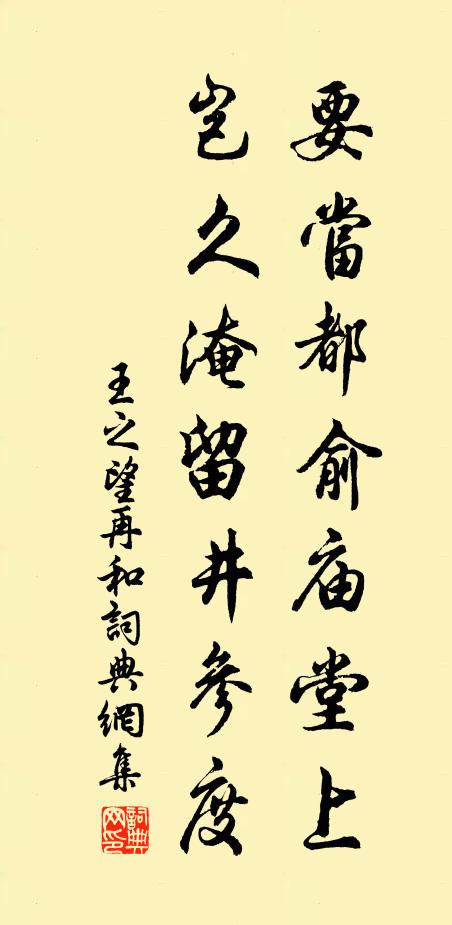 要當都俞庙堂上
豈久淹留井參度
王之望再和詞典網集
詞典网印